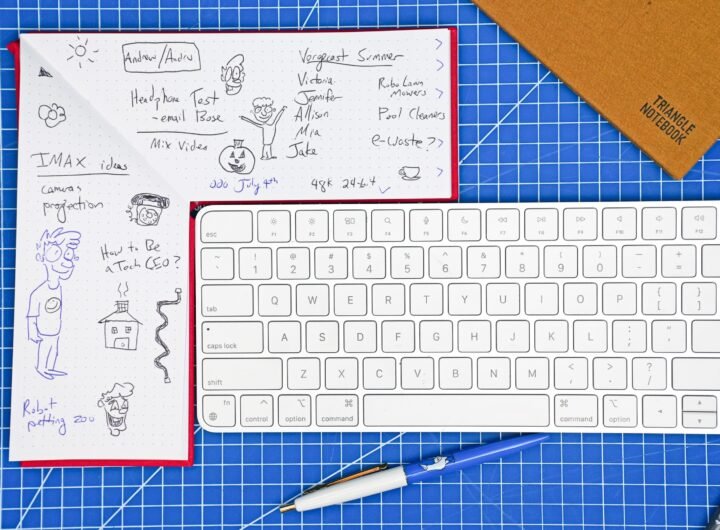 Andrew/Andru
Headphone Test
- email Bose
Mix Video
Vergecast Summer
Victoria
Jennifer
Allison
Mia
Jake
Robo Lawn
Mowers
Pool Cleaners
e-Waste?
OOO July 4th
48k 24-bit
IMAX ideas
cameras
projection
How to Be
a Tech CEO?
Robot
petting zoo
TRIANGLE
NOTEBOOK
esc F1 F2 F3 F4 F5 F6 F7 F8 F9 F10 F11 F12
~ ! @ # $ % ^ & * ( ) _ +
` 1 2 3 4 5 6 7 8 9 0 - =
tab Q W E R T Y U I O P { }
[ ]
caps lock A S D F G H J K L : "
; '
shift Z X C V B N M < > ?
, . /
fn ^ ⌥ ⌘ ⌘ ⌥
control option command command option